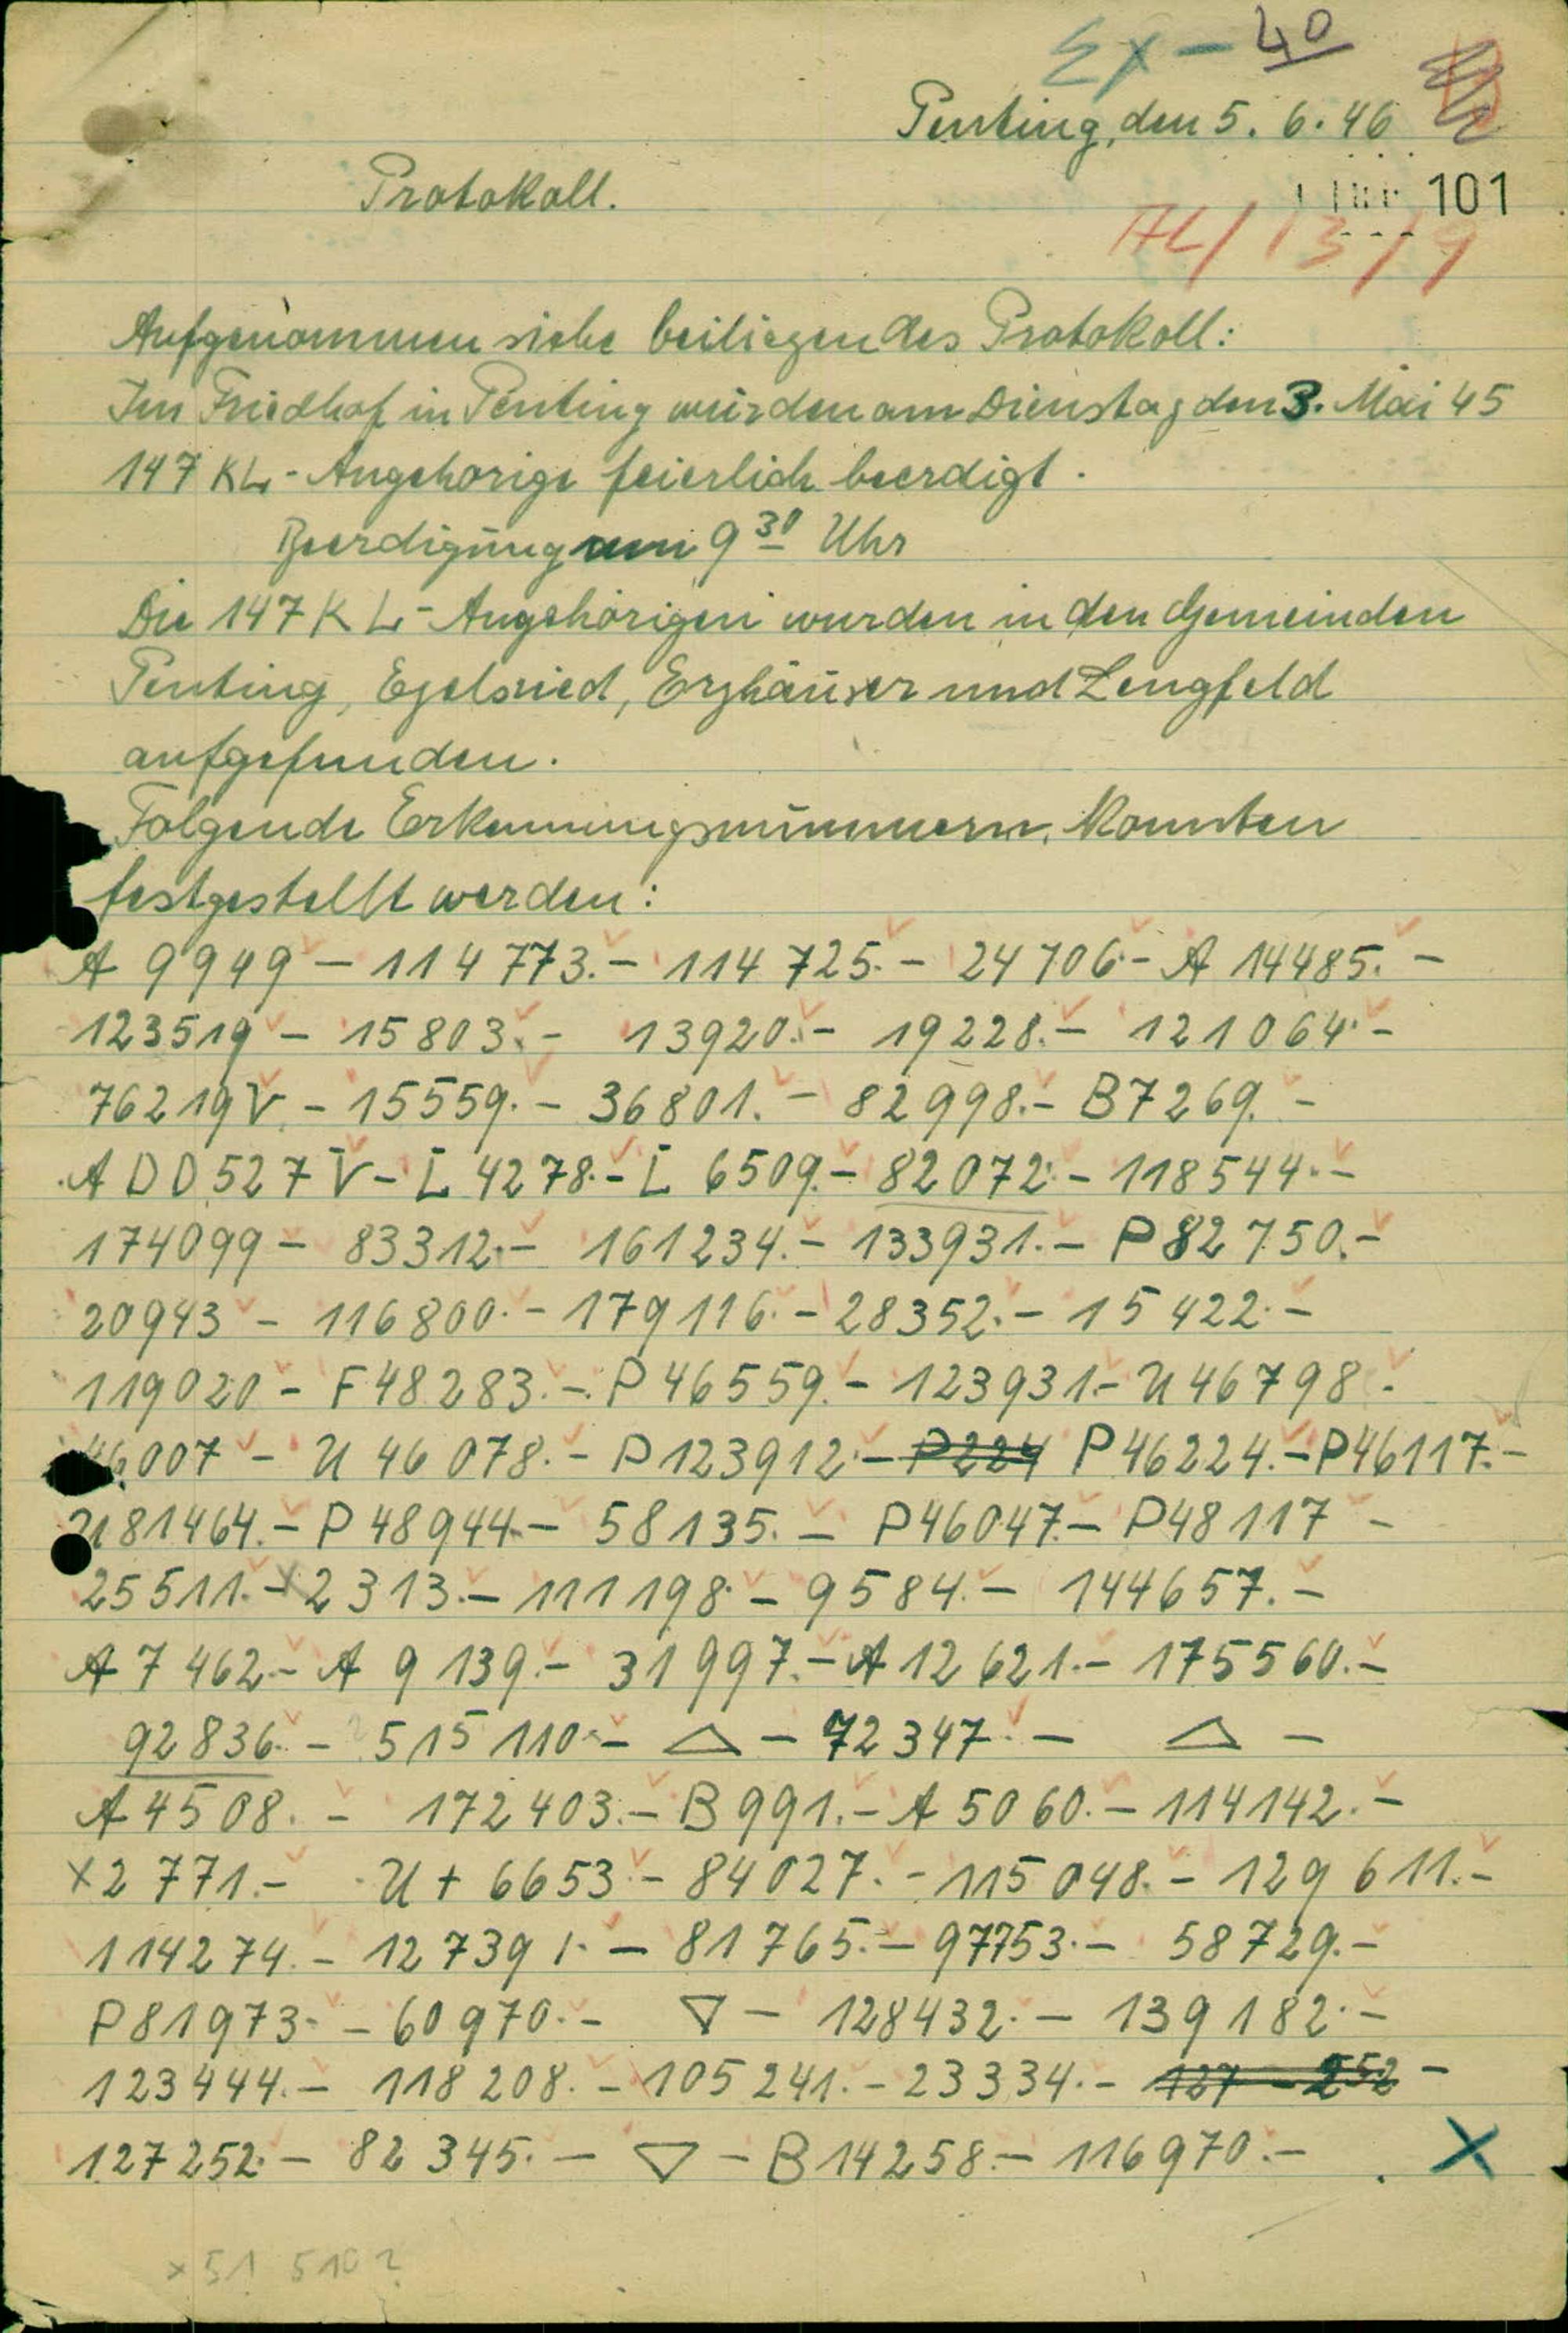 Ex - 40
Penting, den 5. 6. 46
Protokoll.
101
AL/13/9
Aufgenommen siehe beiliegendes Protokoll:
Im Friedhof in Penting wurden am Dienstag den 3. Mai 45
147 KL-Angehörige feierlich beerdigt.
Beerdigung um 9 30 Uhr
Die 147 KL-Angehörigen wurden in den Gemeinden
Penting, Egelsried, Erzhäuser und Lengfeld
aufgefunden.
Folgende Erkennungsnummern, konnten
festgestellt werden:
A 9949 - 114 773. - 114 725. - 24706 - A 14485. -
123519 - 15803. - 13920. - 19228. - 121064. -
76219V. - 15559. - 36801. - 82998. - B7269. -
A D D 527 V - L 4278. - L 6509. - 82072. - 118544. -
174099 - 83312. - 161234. - 133931. - P 82750. -
20943 - 116800. - 179116. - 28352. - 15422. -
119020 - F 48283. - P 46559. - 123931. - U 46798 -
46007 - U 46078. - P 123912. - P224 P 46224. - P46117. -
U81464. - P 48944 - 58135. - P46047. - P48117 -
25511. - x2313. - 111198. - 9584. - 144657. -
A 7462. - A 9139. - 31997. - A 12621. - 175560. -
92836. - 515110. - △ - 72347. - △ -
A 4508. - 172403. - B 991. - A 5060. - 114142. -
x2771. - U + 6653. - 84027. - 115048. - 129611. -
114274. - 127391. - 81765. - 97753. - 58729. -
P81973. - 60970. - ▽ - 128432. - 139182. -
123444. - 118208. - 105241. - 23334. - 127 - 252 -
127252. - 82345. - ▽ - B14258. - 116970. - . X
x 51 510 ?